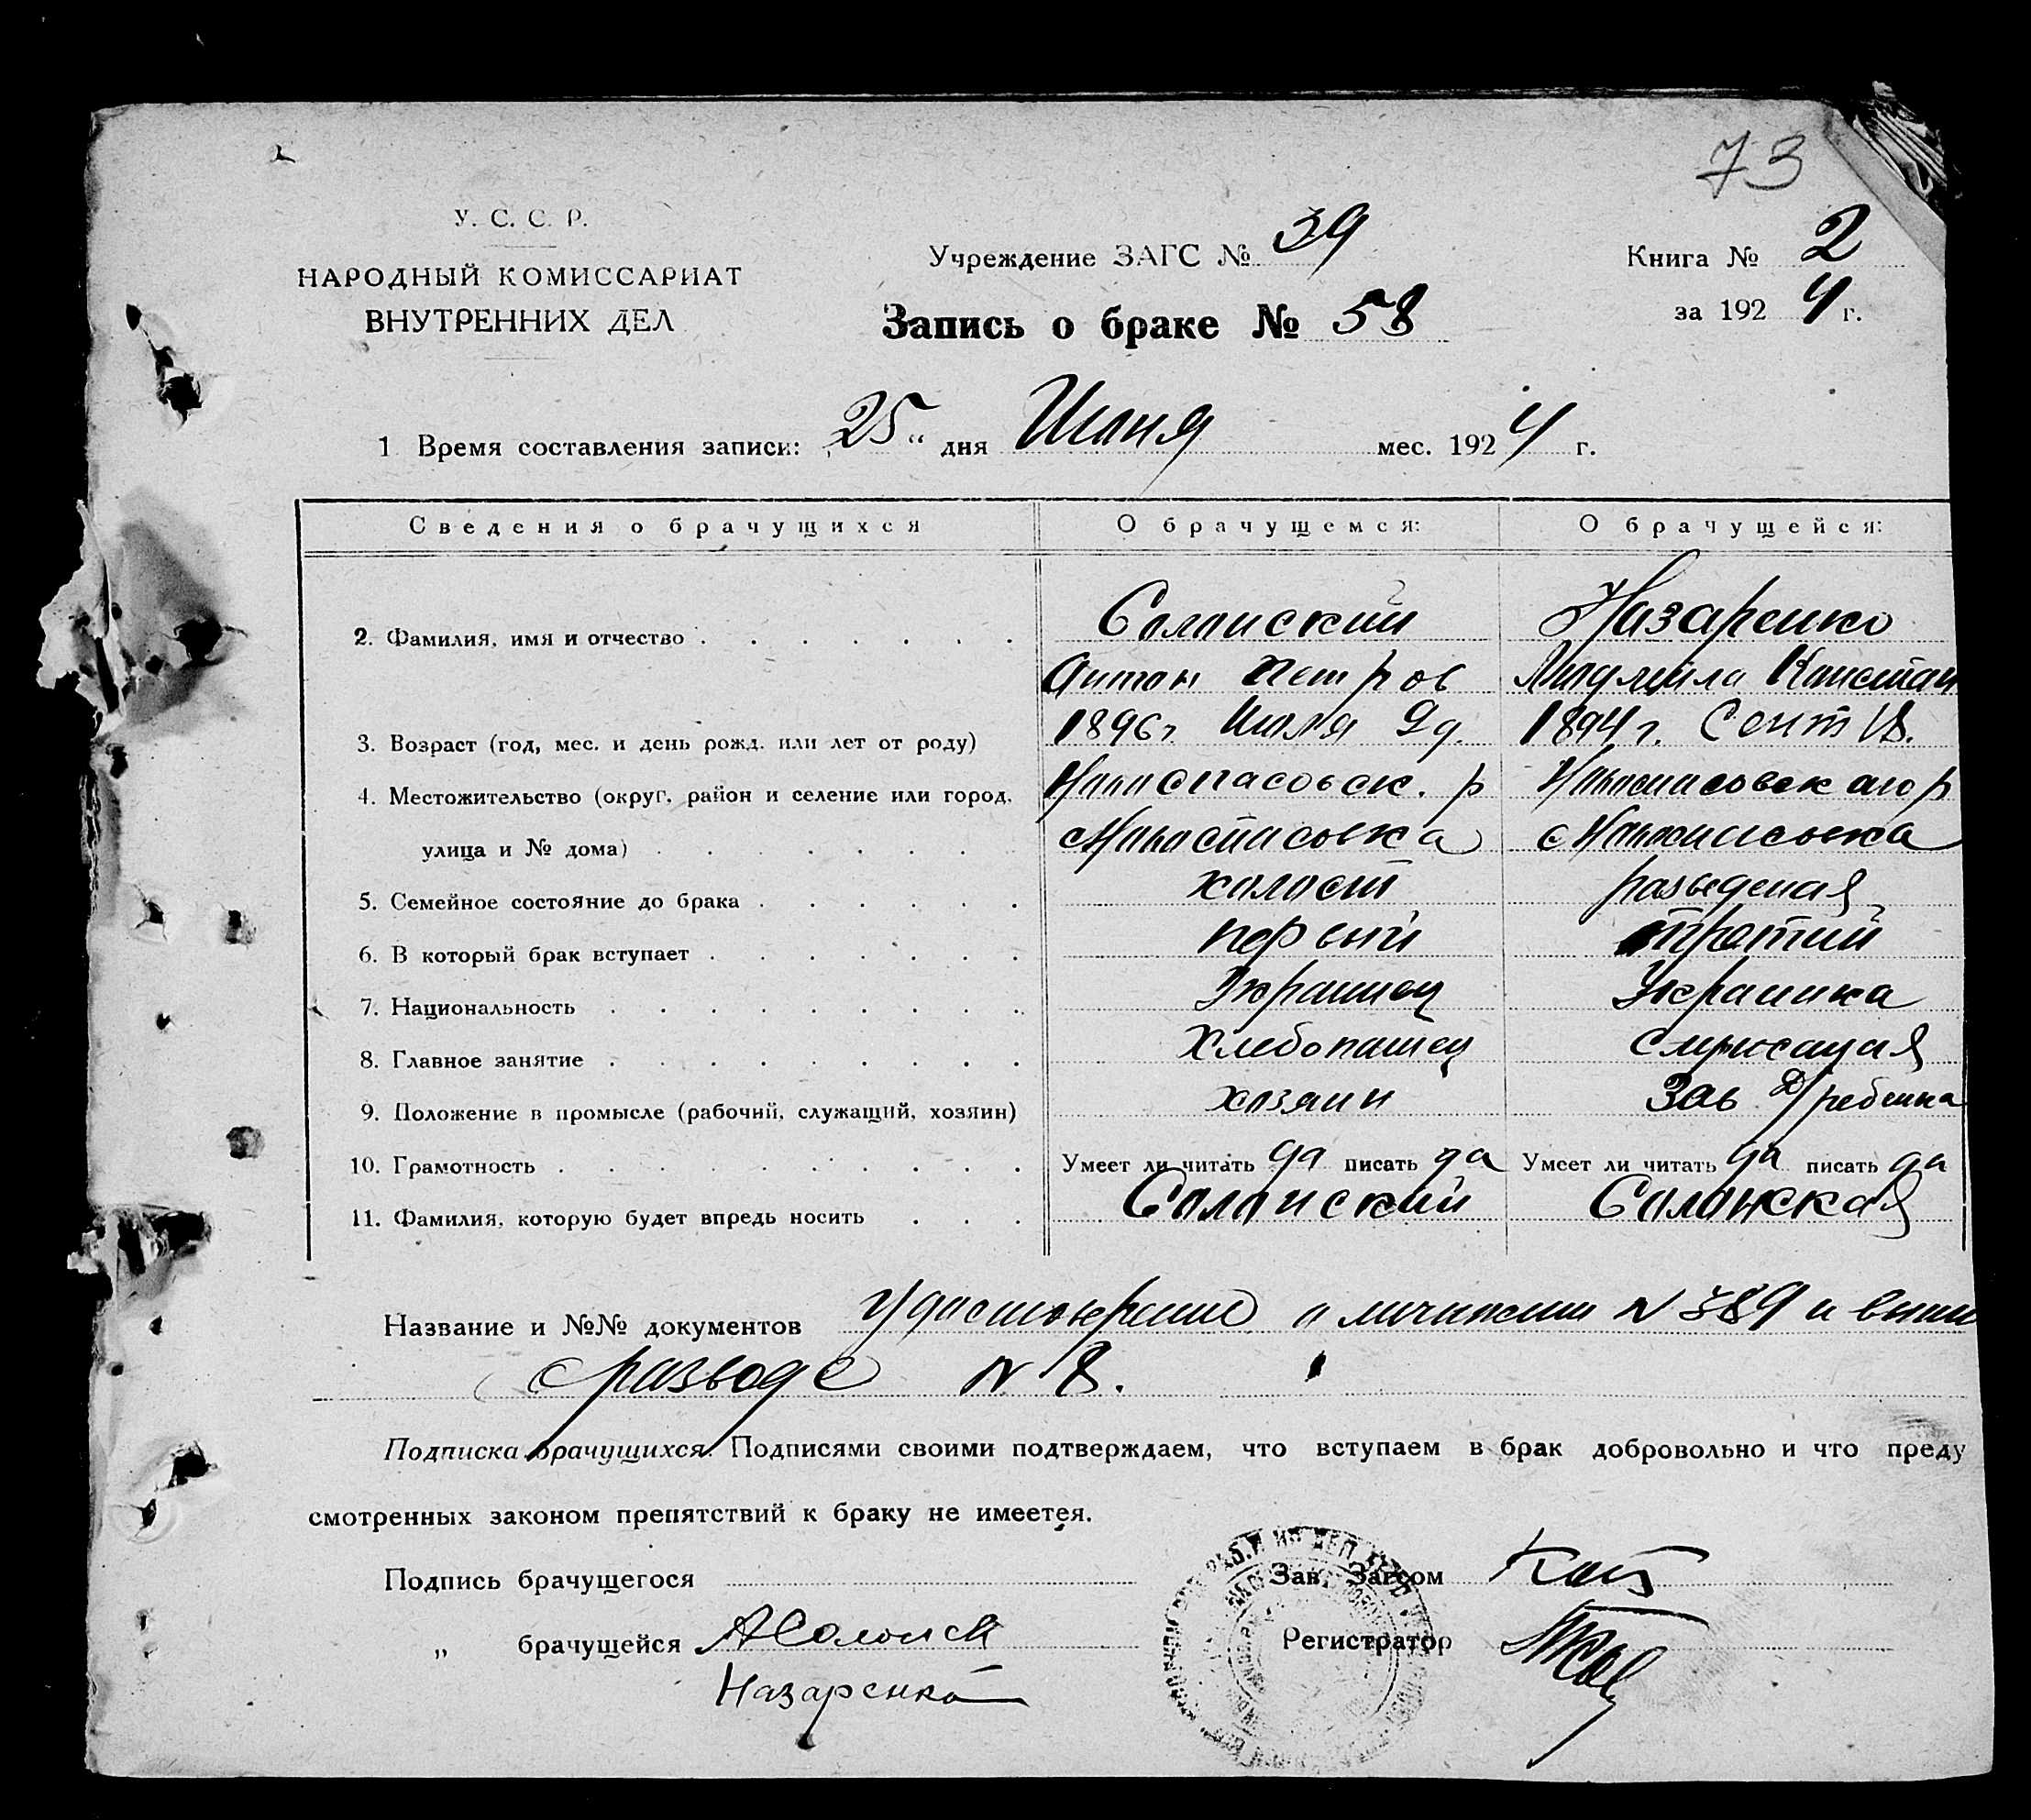 73
У. С. С. Р.
НАРОДНЫЙ КОМИССАРИАТ
ВНУТРЕННИХ ДЕЛ
Учреждение ЗАГС № 39
Запись о браке № 58
Книга № 2
за 1924 г.
1 Время составления записи: 25" дня Июня мес. 1924 г.
Сведения о брачущихся О брачущемся: О брачущейся:
2. Фамилия, имя и отчество Солонский Назаренко
Антон Петров Людмила Констан
3. Возраст (год, мес. и день рожд. или лет от роду) 1896 г. Июля 9 д. 1894 г. Сент
4. Местожительство (округ, район и селение или город, Новоспасовск. р Новоспасовского р
улица и № дома) с Новоспасовка с Новоспасовка
5. Семейное состояние до брака холост разведеная
6. В который брак вступает первый третий
7. Национальность Украинец Украинка
8. Главное занятие Хлебопашец Служащая
9. Положение в промысле (рабочий, служащий, хозяин) хозяин Зав Д/ребенка
10. Грамотность Умеет ли читать да писать да Умеет ли читать да писать да
11. Фамилия, которую будет впредь носить Солонский Солонская
Название и №№ документов Удостоверение о личности N 389 и
о разводе N 8.
Подписка брачущихся. Подписями своими подтверждаем, что вступаем в брак добровольно и что преду
смотренных законом препятствий к браку не имеется.
Подпись брачущегося Зав. Загсом
„ брачущейся АСолонск Регистратор
Назаренко